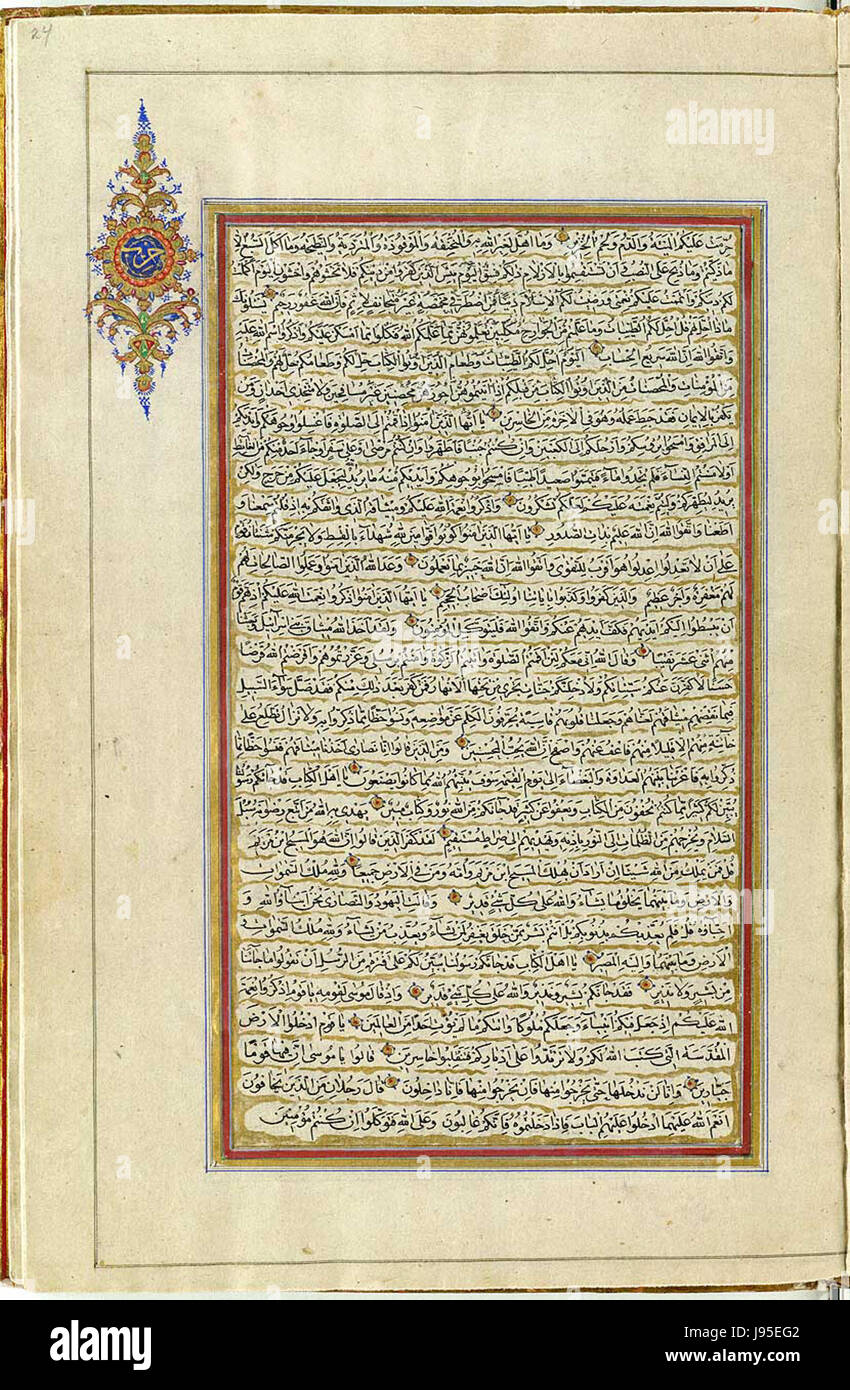 24
حرمت عليكم الميتة والدم ولحم الخنزير وما اهل لغير الله به والمنخنقة والموقوذة والمتردية والنطيحة وما اكل السبع الا
ما ذكيتم وما ذبح على النصب وان تستقسموا بالازلام ذلكم فسق اليوم يئس الذين كفروا من دينكم فلا تخشوهم واخشون اليوم اكملت
لكم دينكم واتممت عليكم نعمتي ورضيت لكم الاسلام دينا فمن اضطر في مخمصة غير متجانف لاثم فان الله غفور رحيم يسئلونك
ماذا احل لهم قل احل لكم الطيبات وما علمتم من الجوارح مكلبين تعلمونهن مما علمكم الله فكلوا مما امسكن عليكم واذكروا اسم الله عليه
واتقوا الله ان الله سريع الحساب اليوم احل لكم الطيبات وطعام الذين اوتوا الكتاب حل لكم وطعامكم حل لهم والمحصنات
من المؤمنات والمحصنات من الذين اوتوا الكتاب من قبلكم اذا اتيتموهن اجورهن محصنين غير مسافحين ولا متخذي اخدان ومن
يكفر بالايمان فقد حبط عمله وهو في الاخرة من الخاسرين يا ايها الذين امنوا اذا قمتم الى الصلوة فاغسلوا وجوهكم وايديكم
الى المرافق وامسحوا برؤسكم وارجلكم الى الكعبين وان كنتم جنبا فاطهروا وان كنتم مرضى او على سفر او جاء احد منكم من الغائط
او لامستم النساء فلم تجدوا ماء فتيمموا صعيدا طيبا فامسحوا بوجوهكم وايديكم منه ما يريد الله ليجعل عليكم من حرج ولكن
يريد ليطهركم وليتم نعمته عليكم لعلكم تشكرون واذكروا نعمة الله عليكم وميثاقه الذي واثقكم به اذ قلتم سمعنا و
اطعنا واتقوا الله ان الله عليم بذات الصدور يا ايها الذين امنوا كونوا قوامين لله شهداء بالقسط ولا يجرمنكم شنئان قوم
على ان لا تعدلوا اعدلوا هو اقرب للتقوى واتقوا الله ان الله خبير بما تعملون وعد الله الذين امنوا وعملوا الصالحات لهم
لهم مغفرة واجر عظيم والذين كفروا وكذبوا باياتنا اولئك اصحاب الجحيم يا ايها الذين امنوا اذكروا نعمت الله عليكم اذ هم قوم
ان يبسطوا اليكم ايديهم فكف ايديهم عنكم واتقوا الله وعلى الله فليتوكل المؤمنون ولقد اخذ الله ميثاق بني اسرائيل وبعثنا
منهم اثني عشر نقيبا وقال الله اني معكم لئن اقمتم الصلوة واتيتم الزكوة وامنتم برسلي وعزرتموهم واقرضتم الله قرضا
حسنا لاكفرن عنكم سيئاتكم ولادخلنكم جنات تجري من تحتها الانهار فمن كفر بعد ذلك منكم فقد ضل سواء السبيل
فبما نقضهم ميثاقهم لعناهم وجعلنا قلوبهم قاسية يحرفون الكلم عن مواضعه ونسوا حظا مما ذكروا به ولا تزال تطلع على
خائنة منهم الا قليلا منهم فاعف عنهم واصفح ان الله يحب المحسنين ومن الذين قالوا انا نصارى اخذنا ميثاقهم فنسوا حظا مما
ذكروا به فاغرينا بينهم العداوة والبغضاء الى يوم القيمة وسوف ينبئهم الله بما كانوا يصنعون يا اهل الكتاب قد جاءكم رسولنا
يبين لكم كثيرا مما كنتم تخفون من الكتاب ويعفو عن كثير قد جاءكم من الله نور وكتاب مبين يهدي به الله من اتبع رضوانه سبل
السلام ويخرجهم من الظلمات الى النور باذنه ويهديهم الى صراط مستقيم لقد كفر الذين قالوا ان الله هو المسيح ابن مريم
قل فمن يملك من الله شيئا ان اراد ان يهلك المسيح ابن مريم وامه ومن في الارض جميعا ولله ملك السموات
والارض وما بينهما يخلق ما يشاء والله على كل شيء قدير وقالت اليهود والنصارى نحن ابناؤ الله و
احباؤه قل فلم يعذبكم بذنوبكم بل انتم بشر ممن خلق يغفر لمن يشاء ويعذب من يشاء ولله ملك السموات و
الارض وما بينهما واليه المصير يا اهل الكتاب قد جاءكم رسولنا يبين لكم على فترة من الرسل ان تقولوا ما جاءنا
من بشير ولا نذير فقد جاءكم بشير ونذير والله على كل شيء قدير واذ قال موسى لقومه يا قوم اذكروا نعمة
الله عليكم اذ جعل فيكم انبياء وجعلكم ملوكا واتيكم ما لم يؤت احدا من العالمين يا قوم ادخلوا الارض
المقدسة التي كتب الله لكم ولا ترتدوا على ادباركم فتنقلبوا خاسرين قالوا يا موسى ان فيها قوما
جبارين وانا لن ندخلها حتى يخرجوا منها فان يخرجوا منها فانا داخلون قال رجلان من الذين يخافون
انعم الله عليهما ادخلوا عليهم الباب فاذا دخلتموه فانكم غالبون وعلى الله فتوكلوا ان كنتم مؤمنين
alamy
Image ID: J95EG2
www.alamy.com